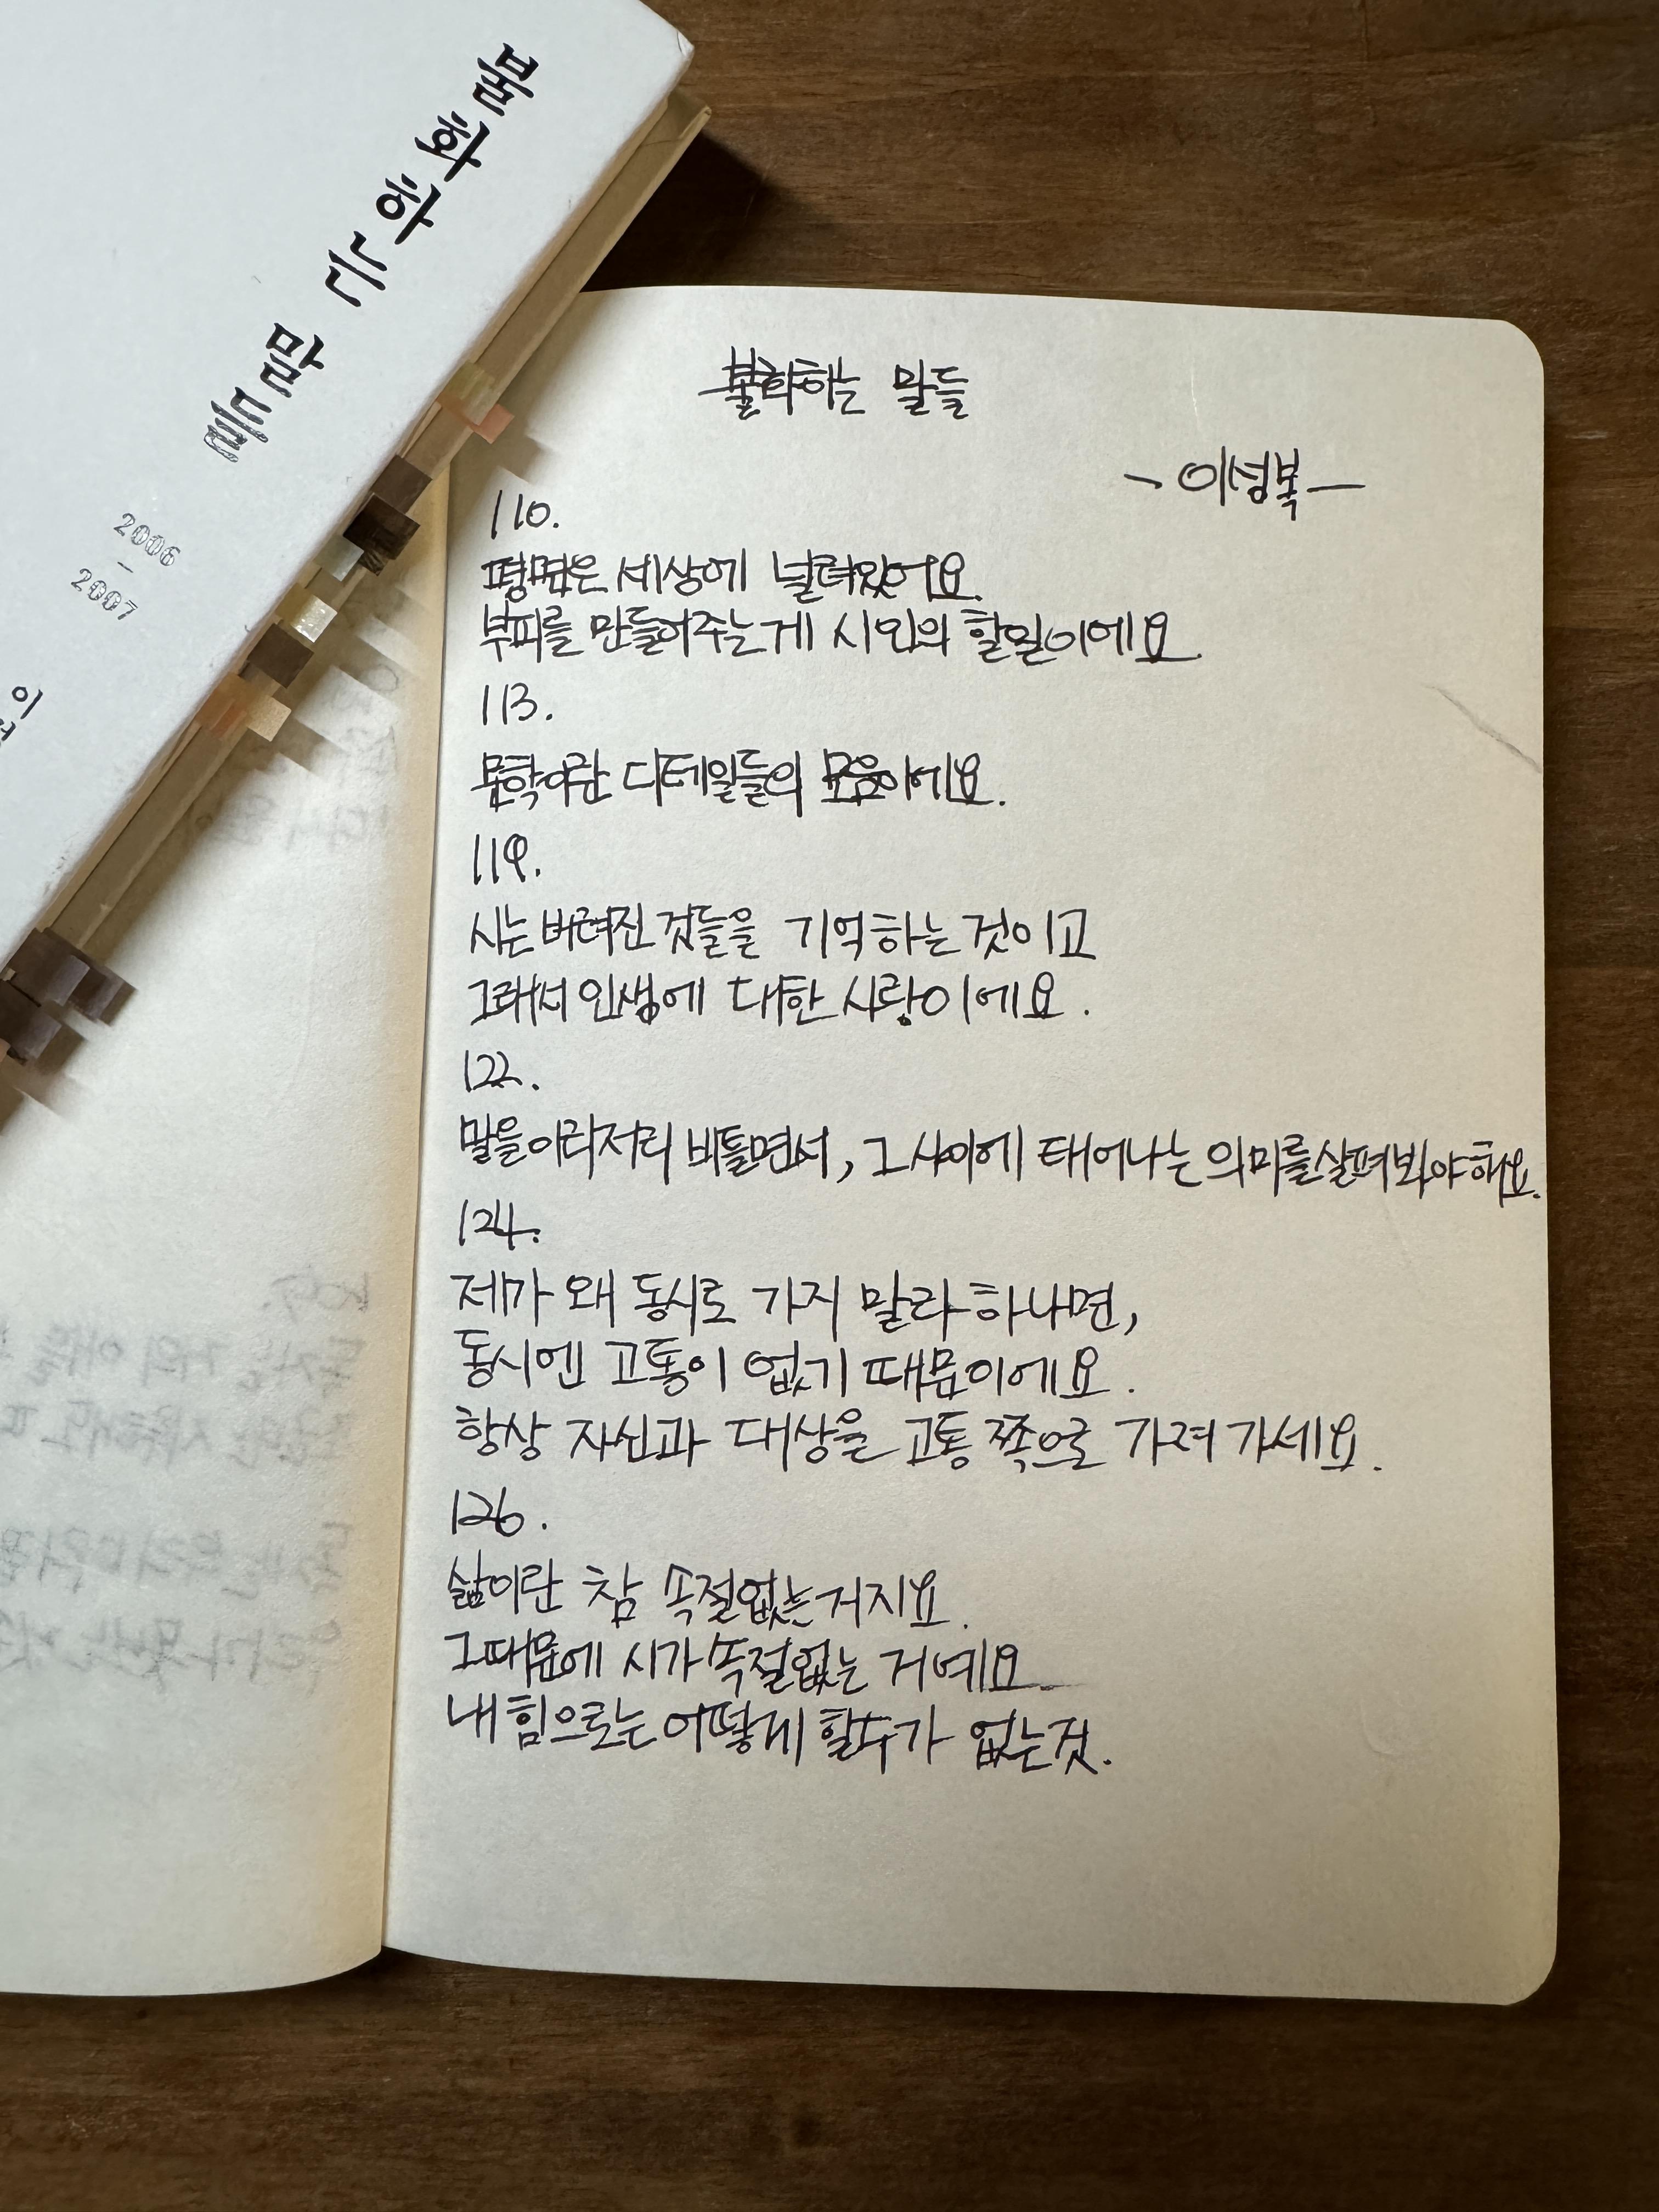 불화하는 말들
2006
–
2007
이
불화하는 말들
- 이성복 -
110.
평면은 세상에 널려있어요.
부피를 만들어주는게 시인의 할일이에요.
113.
문학이란 디테일들의 모음이에요.
119.
시는 버려진 것들을 기억하는 것이고
그래서 인생에 대한 사랑이에요.
122.
말을 이리저리 비틀면서, 그 사이에 태어나는 의미를 살펴봐야해요.
124.
제가 왜 동시로 가지 말라 하냐면,
동시엔 고통이 없기 때문이에요.
항상 자신과 대상을 고통 쪽으로 가져 가세요.
126.
삶이란 참 속절없는 거지요.
그 때문에 시가 속절없는 거예요.
내 힘으로는 어떻게 할 수가 없는 것.